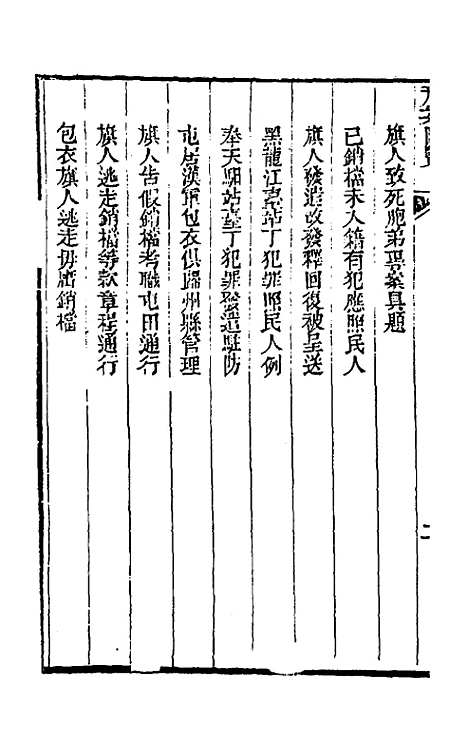 旗人致死胞弟專案具題
已銷檔未入籍有犯應照民人
旗人發遣改發釋回復被呈送
黑龍江臺站丁犯罪照民人例
奉天驛站臺丁犯罪發遣駐防
屯居漢軍包衣俱歸州縣管理
旗人告假銷檔考職屯田通行
旗人逃走銷檔等款章程通行
包衣旗人逃走毋庸銷檔